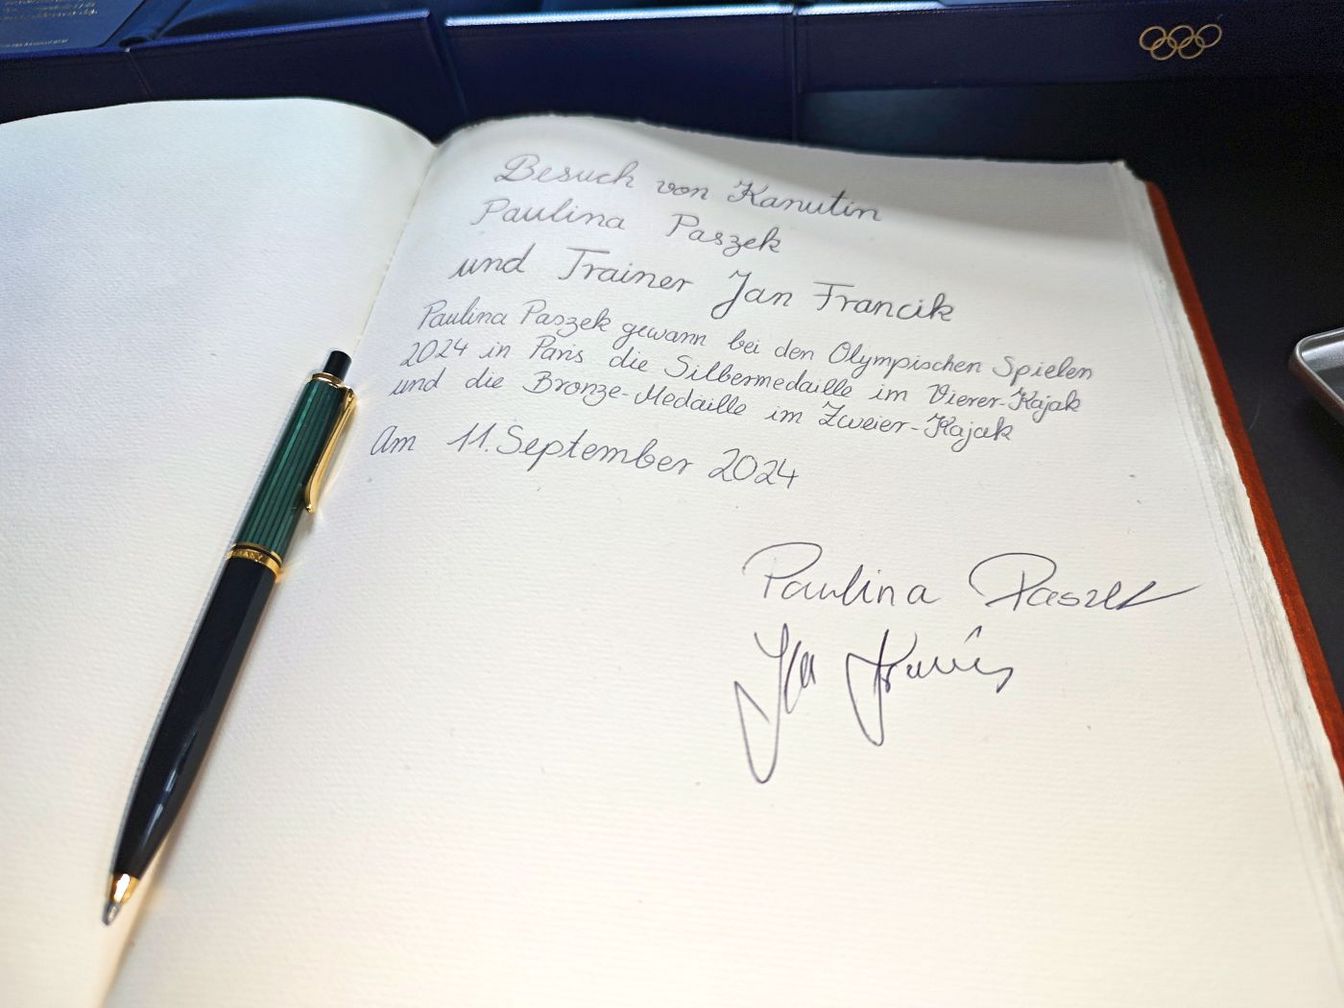 Besuch von Kanutin
Paulina Paszek
und Trainer Jan Francik
Paulina Paszek gewann bei den Olympischen Spielen
2024 in Paris die Silbermedaille im Vierer-Kajak
und die Bronze-Medaille im Zweier-Kajak
Am 11. September 2024
Paulina Paszek
Jan Francik